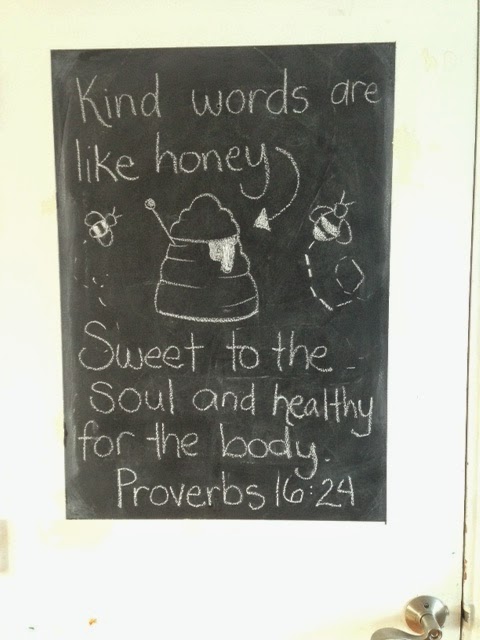 Kind words are
like honey
Sweet to the
soul and healthy
for the body.
Proverbs 16:24